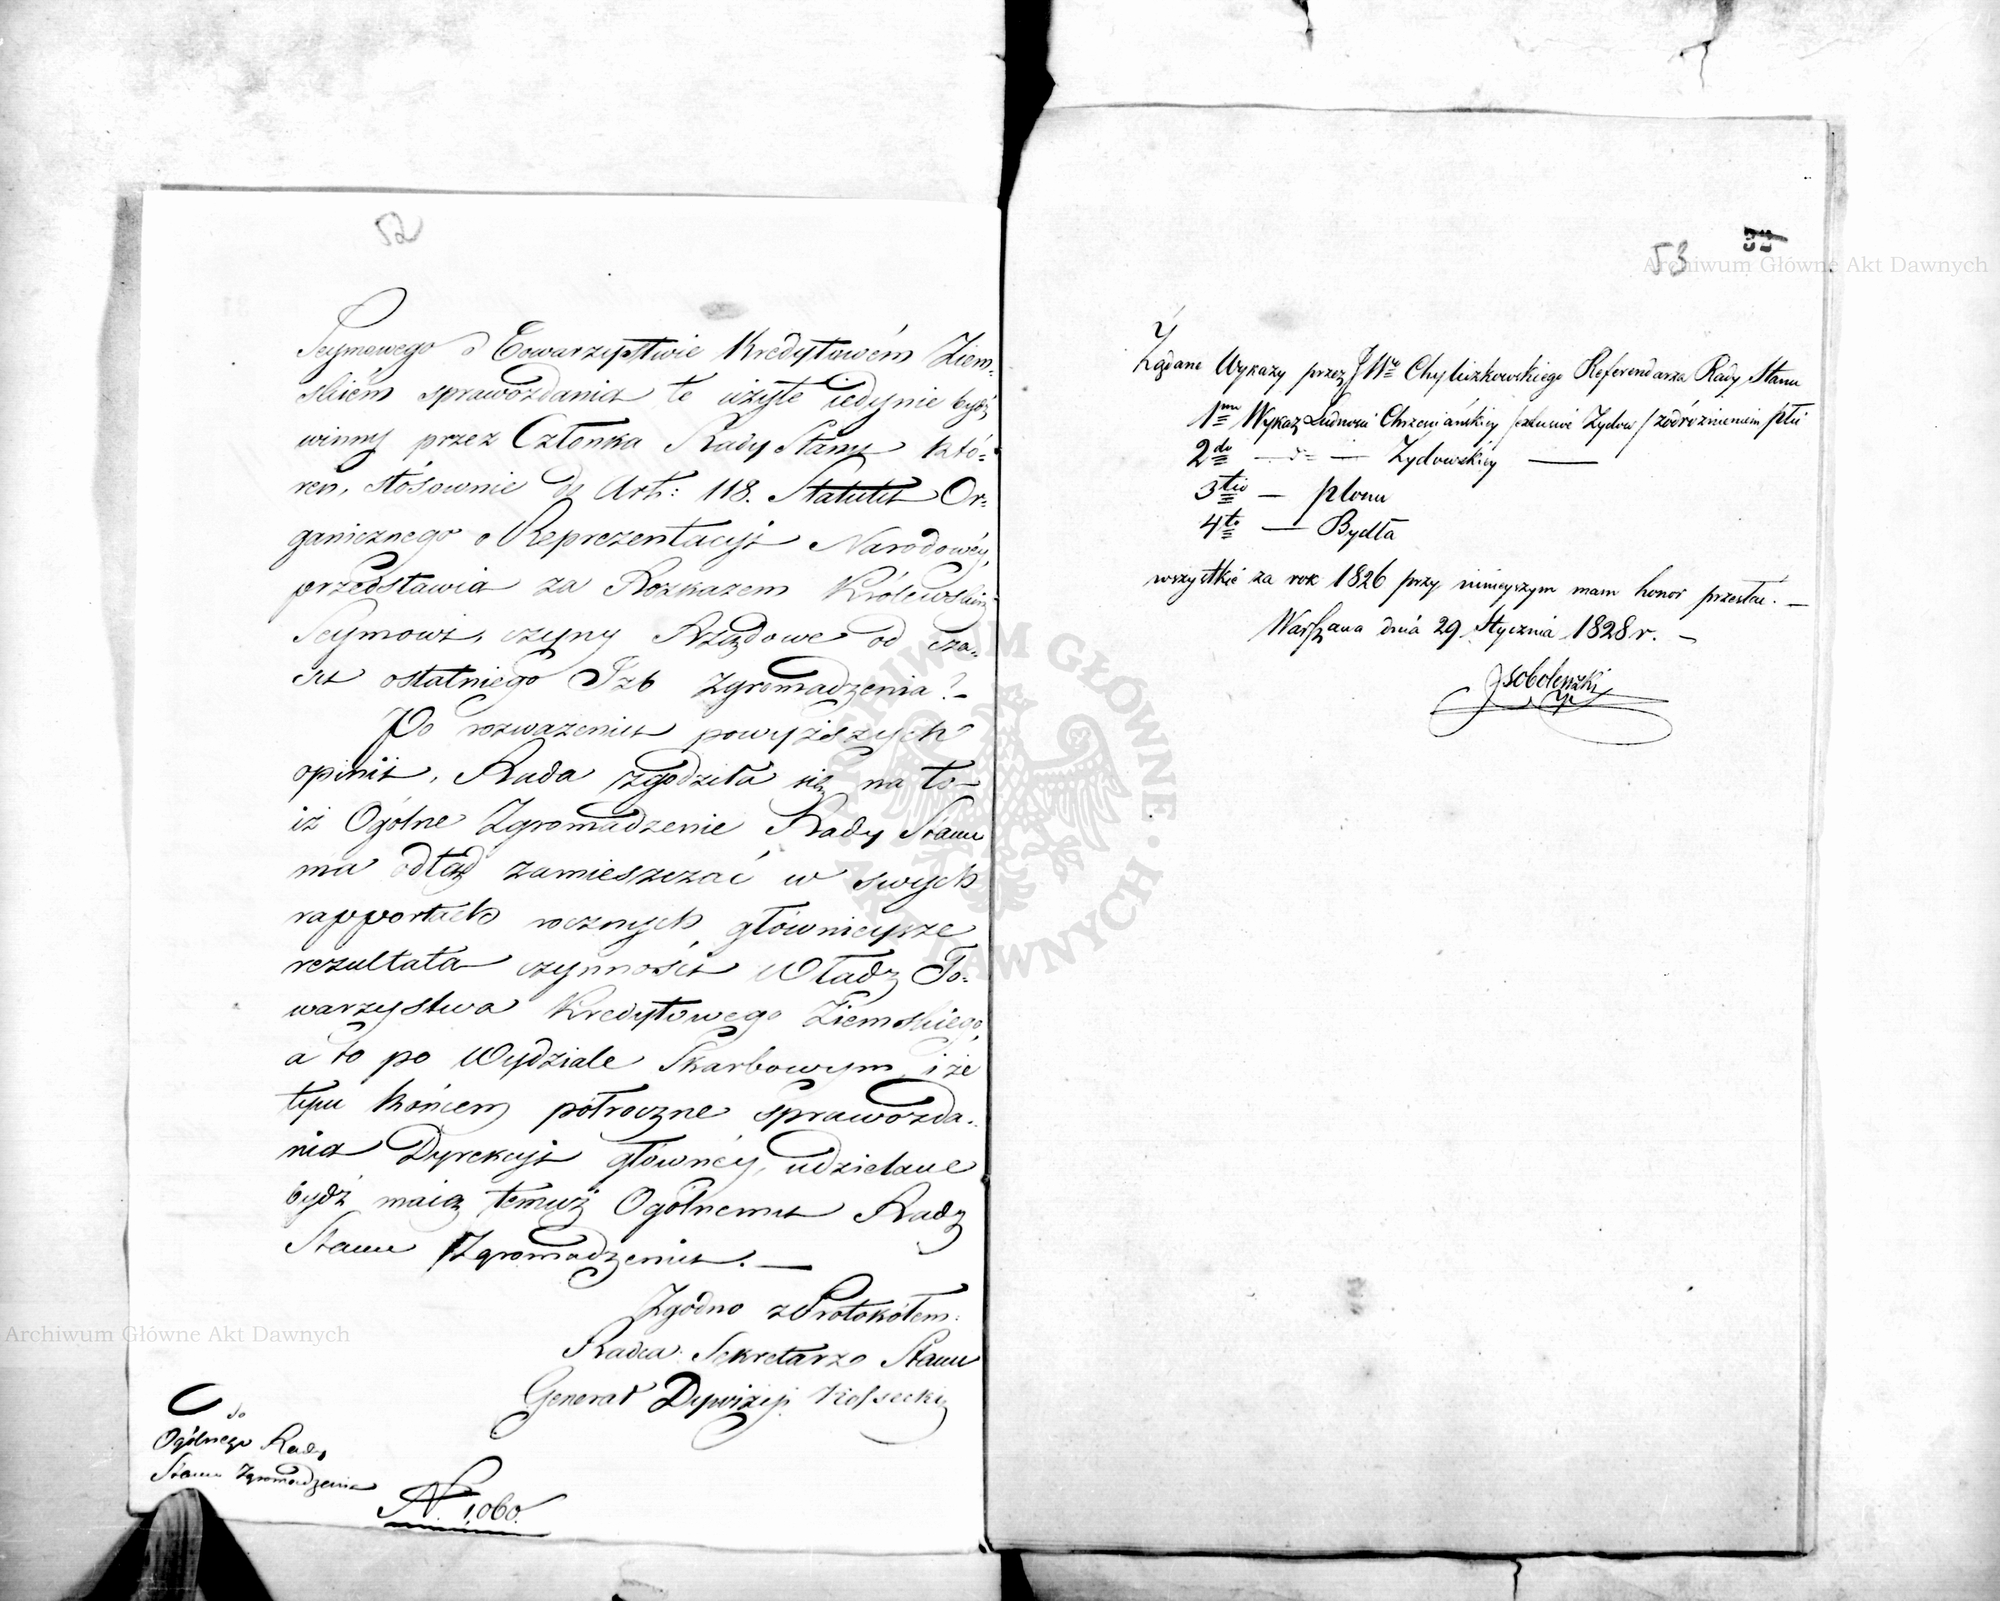 52
Seymowego o Towarzystwie Kredytowém Ziem-
skiém sprawozdania te użyte iedynie bydź
winny przez Członka Rady Stanu któ-
ren, stósownie do Art: 118. Statutu Or-
ganicznego o Reprezentacyi Narodowéy
przedstawia za Rozkazem Królewskim
Seymowi, czyny Rządowe od cza-
su ostatniego Izb zgromadzenia?-
Po rozważeniu powyższych
opinii, Rada zgodziła się na to-
iż Ogólne Zgromadzenie Rady Stanu
ma odtąd zamieszczać w swych
rapportach rocznych główniejsze
rezultata czynności Władz To-
warzystwa Kredytowego Ziemskiego,
a to po Wydziale Skarbowym, i że
tym końcem półroczne sprawozda-
nia Dyrekcyi główney, udzielane
bydź maią temuż Ogólnemu Rady
Stanu Zgromadzeniu. —
Zgodno z Protokółem:
Radca Sekretarz Stanu
Generał Dywizyi Kossecki
do
Ogólnego Rady
Stanu Zgromadzenia
N. 1,060.
53 32
Żądane Wykazy przez JWo Chyliczkowskiego Referendarza Rady Stanu
1mo Wykaz Ludności Chrześciańskiey Żydów / z odróżnieniem płci
2do — do — Żydowskiey —
3tio — plonu
4to — Bydła
wszystkie za rok 1826 przy ninieyszym mam honor przesłać. —
Warszawa dnia 29 Stycznia 1828 r. —
J Sobolewski
Archiwum Główne Akt Dawnych
Archiwum Główne Akt Dawnych
ARCHIWUM GŁÓWNE · AKT DAWNYCH ·